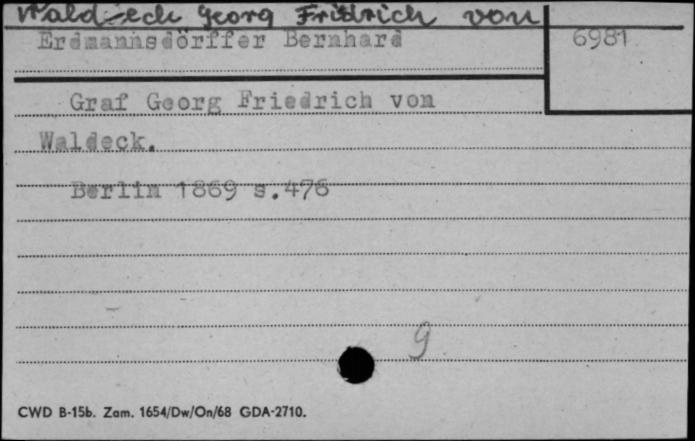 Waldeck Georg Fridrich von
Erdmannsdörffer Bernhard 6981
Graf Georg Friedrich von
Waldeck.
Berlin 1869 s.476
9
CWD B-15b. Zam. 1654/Dw/On/68 GDA-2710.